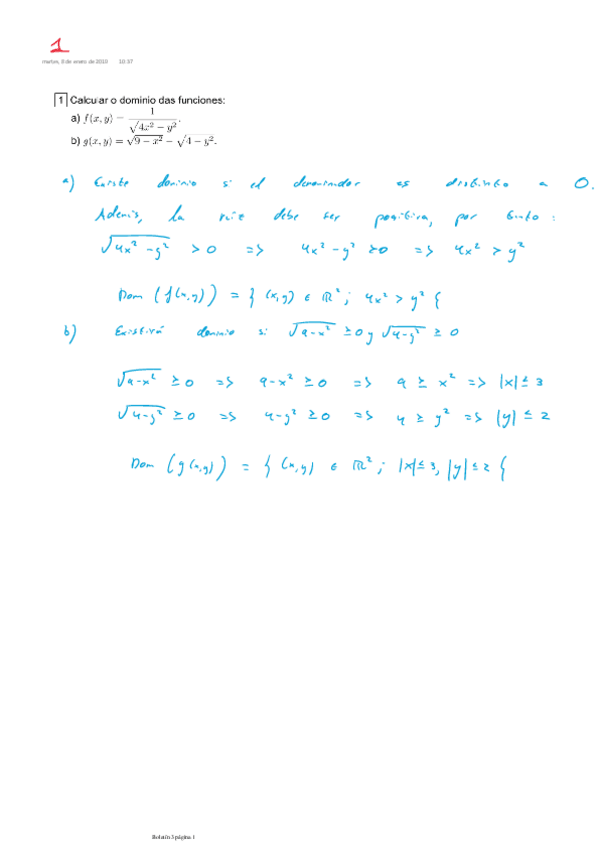 1
martes, 8 de enero de 2019 10:37
1 Calcular o dominio das funciones:
a) f(x, y) = 1/√(4x² − y²).
b) g(x, y) = √(9 − x²) − √(4 − y²).
a) Existe dominio si el denominador es distinto a 0.
Además, la raiz debe ser positiva, por tanto:
√(4x² − y²) > 0 => 4x² − y² > 0 => 4x² > y²
Dom (f(x,y)) = { (x,y) ∈ ℝ² ; 4x² > y² {
b) Existirá dominio si √(9−x²) ≥ 0 y √(4−y²) ≥ 0
√(9−x²) ≥ 0 => 9−x² ≥ 0 => 9 ≥ x² => |x| ≤ 3
√(4−y²) ≥ 0 => 4−y² ≥ 0 => 4 ≥ y² => |y| ≤ 2
Dom (g(x,y)) = { (x,y) ∈ ℝ² ; |x| ≤ 3, |y| ≤ 2 {
Boletín 3 página 1